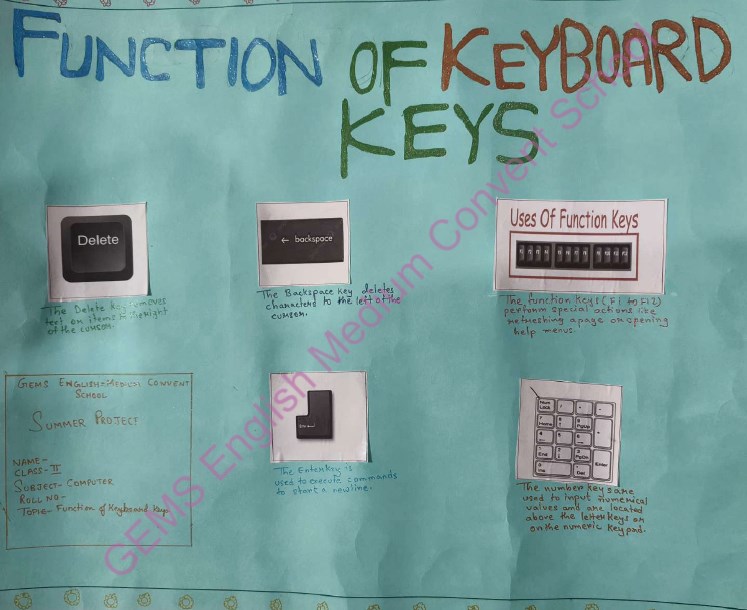 FUNCTION OF KEYBOARD
KEYS
Delete
The Delete key removes
text on items to the right
of the cursor.
← backspace
The Backspace key deletes
characters to the left of the
cursor.
Uses Of Function Keys
The function keys (F1 to F12)
perform special actions like
refreshing a page or opening
help menus.
GEMS ENGLISH MEDIUM CONVENT
SCHOOL
SUMMER PROJECT
NAME-
CLASS- II
SUBJECT- COMPUTER
ROLL NO-
TOPIC- Function of Keyboard Keys
Enter
The Enter key is
used to execute commands
to start a newline.
Num
Lock / * -
7
Home 8 9
PgUp +
4 5 6
1
End 2 3
PgDn Enter
0
Ins . Del
The number keys are
used to input numerical
values and are located
above the letter keys or
on the numeric keypad.
GEMS English Medium Convent School